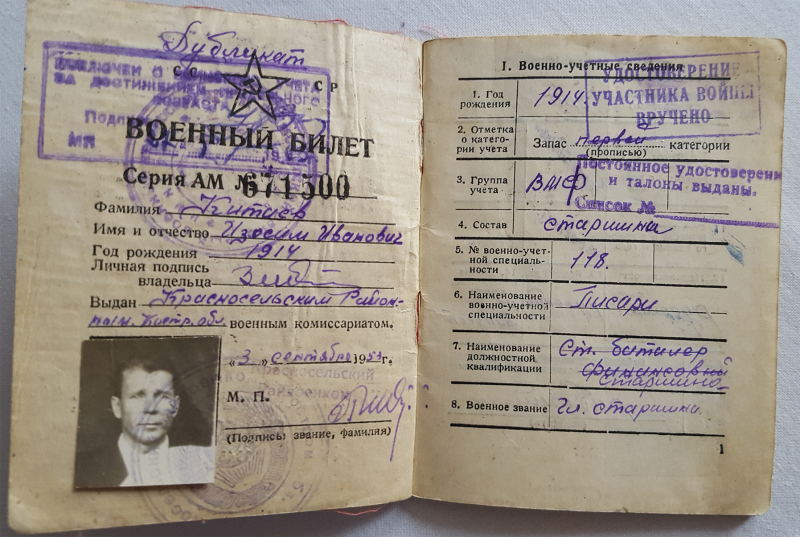 Дубликат
СССР
ЗА ДОСТИЖЕНИЕМ
ВОЗРАСТА
МП
ВОЕННЫЙ БИЛЕТ
Серия АМ № 671500
Фамилия Китаев
Имя и отчество Изосим Иванович
Год рождения 1914
Личная подпись
владельца
Выдан Красносельским Район-
ным Костр. обл. военным комиссариатом.
„3„ сентября 1953 г.
М. П.
(Подпись, звание, фамилия)
I. Военно-учетные сведения
УДОСТОВЕРЕНИЕ
УЧАСТНИКА ВОЙНЫ
ВРУЧЕНО
1. Год
рождения
1914.
2. Отметка
о катего-
рии учета
Запас первой категории
(прописью)
Постоянное удостоверени
и талоны выданы.
Список №
3. Группа
учета
ВМФ
4. Состав
старшина
5. № военно-учет-
ной специаль-
ности
118.
6. Наименование
военно-учетной
специальности
Писари
7. Наименование
должностной
квалификации
Ст. баталер
финансовый
Старшина
8. Военное звание
Гл. старшина
1